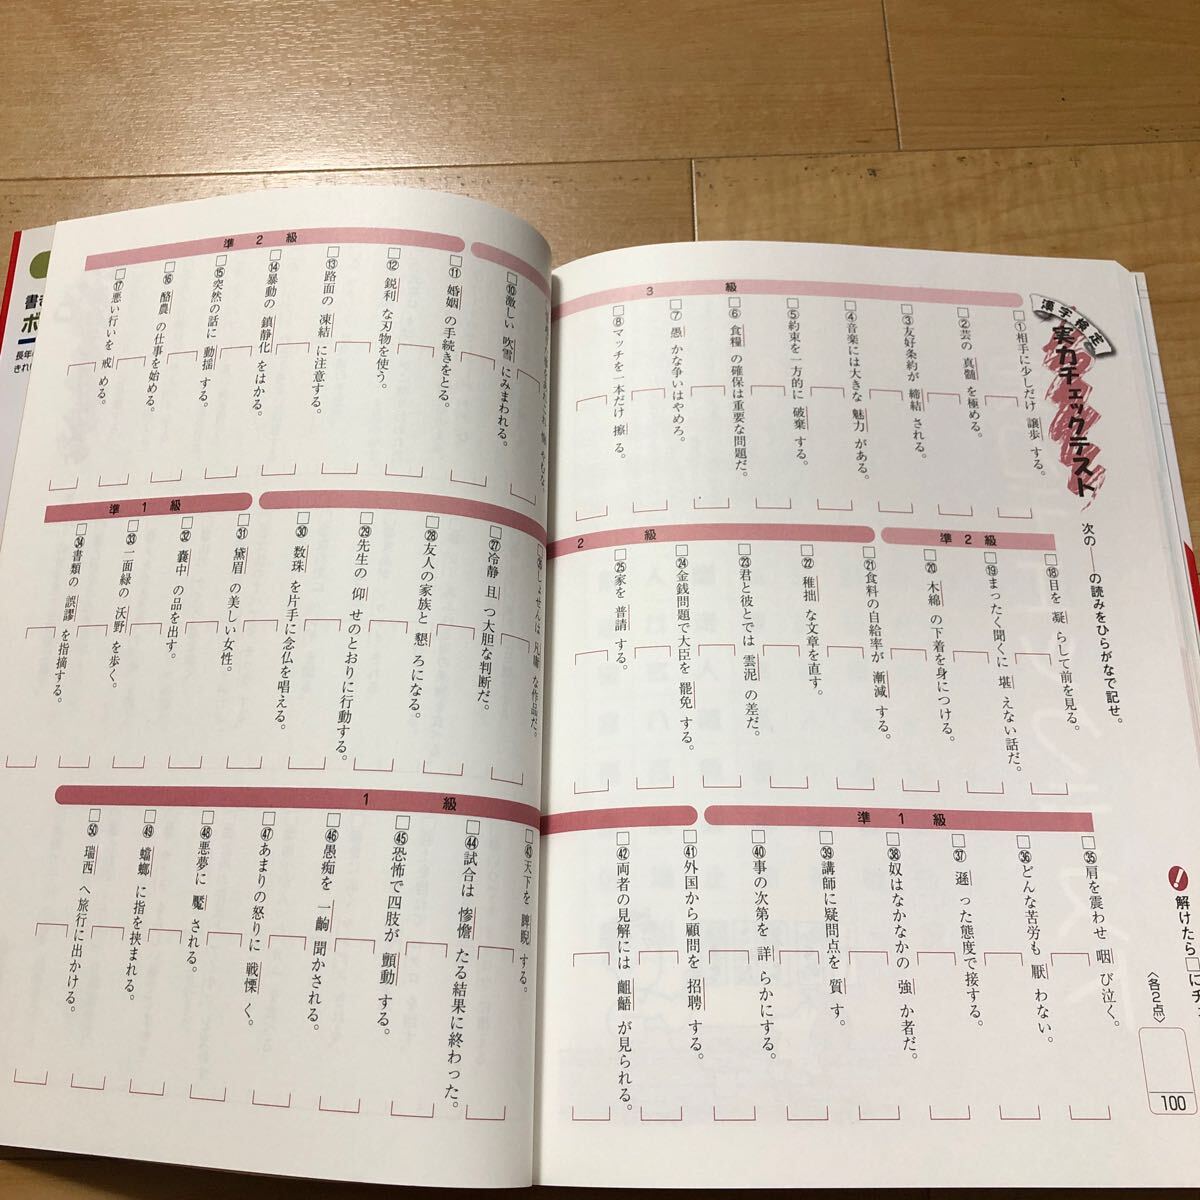 漢字検定
実力チェックテスト
次の――の読みをひらがなで記せ。
解けたら□に
〈各2点〉
100
3級
①相手に少しだけ譲歩する。
②芸の真髄を極める。
③友好条約が締結される。
④音楽には大きな魅力がある。
⑤約束を一方的に破棄する。
⑥食糧の確保は重要な問題だ。
⑦愚かな争いはやめろ。
⑧マッチを一本だけ擦る。
⑩激しい吹雪にみまわれる。
準2級
⑪婚姻の手続きをとる。
⑫鋭利な刃物を使う。
⑬路面の凍結に注意する。
⑭暴動の鎮静化をはかる。
⑮突然の話に動揺する。
⑯酪農の仕事を始める。
⑰悪い行いを戒める。
準2級
⑱目を凝らして前を見る。
⑲まったく聞くに堪えない話だ。
⑳木綿の下着を身につける。
2級
㉑食料の自給率が漸減する。
㉒稚拙な文章を直す。
㉓君と彼とでは雲泥の差だ。
㉔金銭問題で大臣を罷免する。
㉕家を普請する。
㉖しょせんは凡庸な作品だ。
㉗冷静且つ大胆な判断だ。
㉘友人の家族と懇ろになる。
㉙先生の仰せのとおりに行動する。
㉚数珠を片手に念仏を唱える。
準1級
㉛黛眉の美しい女性。
㉜嚢中の品を出す。
㉝一面緑の沃野を歩く。
㉞書類の誤謬を指摘する。
準1級
㉟肩を震わせ咽び泣く。
㊱どんな苦労も厭わない。
㊲遜った態度で接する。
㊳奴はなかなかの強か者だ。
㊴講師に疑問点を質す。
㊵事の次第を詳らかにする。
㊶外国から顧問を招聘する。
1級
㊷両者の見解には齟齬が見られる。
㊸天下を睥睨する。
㊹試合は惨憺たる結果に終わった。
㊺恐怖で四肢が顫動する。
㊻愚痴を一齣聞かされる。
㊼あまりの怒りに戦慄く。
㊽悪夢に魘される。
㊾蟷螂に指を挟まれる。
㊿瑞西へ旅行に出かける。